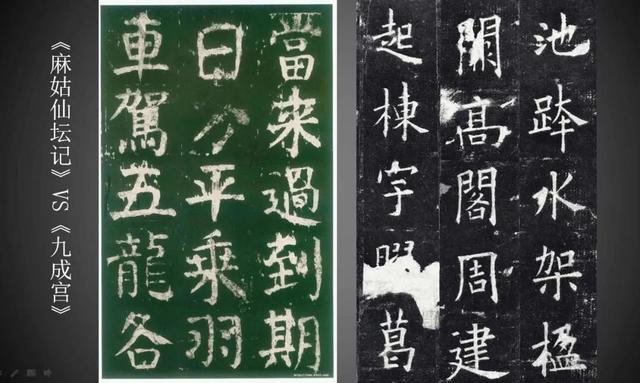 《麻姑仙坛记》VS《九成宫》
當来過到期
日方平乗羽
車駕五龍各
池跨水架楹
闕高閣周建
起棟宇葛